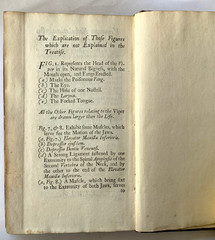 The Explication of Those Figures
which are not Explained in the
Treatise.
FIG. 1. Represents the Head of the Vi-
per in its Natural Bigness, with the
Mouth open, and Fangs Erected.
(a) Marks the Poisonous Fang.
(b) The Eye.
(c) The Hole of one Nostril.
(d) The Larynx.
(e) The Forked Tongue.
All the Other Figures relating to the Viper
are drawn larger than the Life.
Fig. 7, & 8. Exhibit some Muscles, which
serve for the Motion of the Jaws.
(a, Fig. 7.) Elevator Maxillæ Inferioris.
(b) Depressor ejusdem.
(c) Depressor Dentis Venenosi.
(d) A strong Ligament fastened by one
Extremity to the Spinal Apophysis of the
Second Vertebra of the Neck, and by
the other to the end of the Elevator
Maxillæ Inferioris.
(a, Fig. 8.) A Muscle, which being fixt
to the Extremity of both Jaws, serves
to